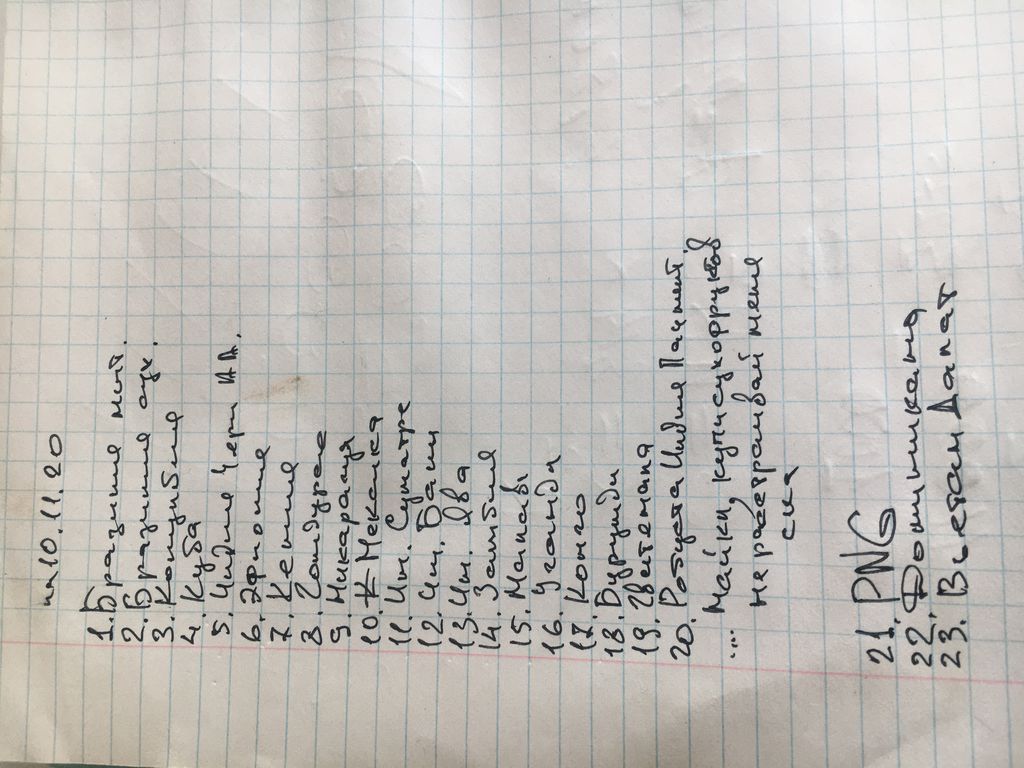 на 10.11.20
1. Бразилия нат.
2. Бразилия сух.
3. Колумбия
4. Куба
5. Индия Черн АА.
6. Эфиопия
7. Кения
8. Гондурас
9. Никарагуа
10. К Мексика
11. Ин. Суматра
12. Ин. Бали
13. Ин. Ява
14. Замбия
15. Малави
16. Уганда
17. Конго
18. Бурунди
19. Гватемала
20. Робуста Индия Плант.
.... Майки, купи сухофруктов
не расстраивай меня
21. PNG
22. Доминикана
23. Вьетнам Далат